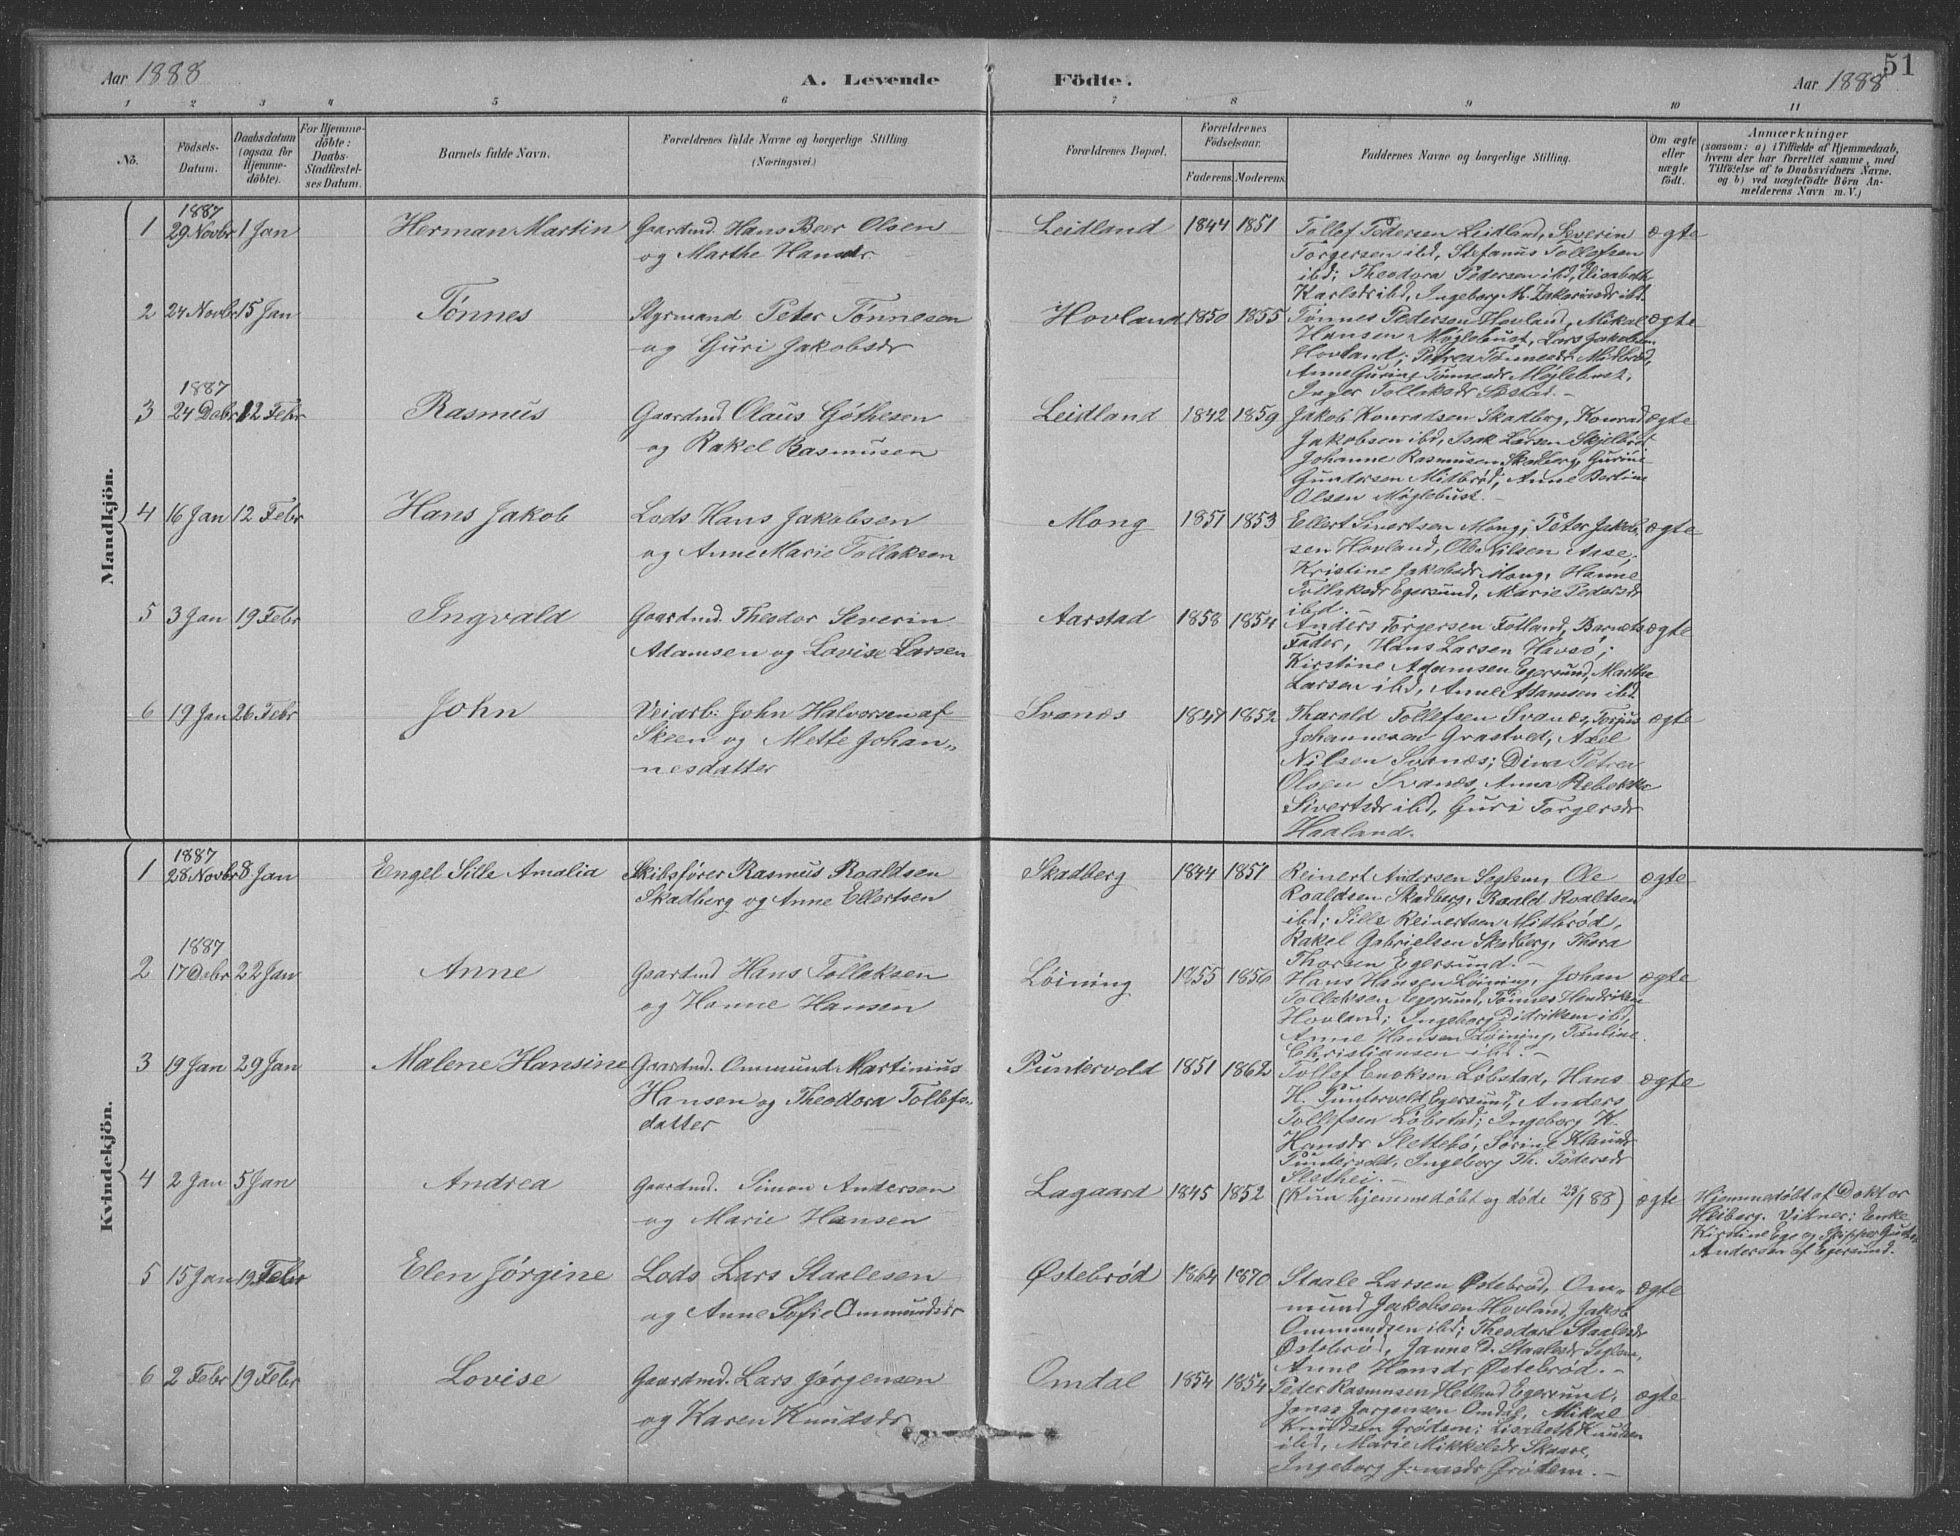 51
Aar 1888
A. Levende Födte.
Aar 1888
1 2 3 4 5 6 7 8 9 10 11
No.
Födsels-Datum.
Daabsdatum (ogsaa for Hjemme-döbte).
For Hjemme-döbte: Daabs-Stadfæstel-ses Datum.
Barnets fulde Navn.
Forældrenes fulde Navne og borgerlige Stilling. (Næringsvei.)
Forældrenes Bopæl.
Forældrenes Födselsaar.
Faderens. Moderens.
Faddernes Navne og borgerlige Stilling.
Om ægte eller uægte födt.
Anmærkninger
(saasom: a) i Tilfælde af Hjemmedaab,
hvem der har forrettet samme, med
Tilföielse af to Daabsvidners Navne,
og b) ved uægtefödte Börn An-
melderens Navn m. V.)
Mandkjön.
1887
1 29 Novbr 1 Jan Herman Martin Gaardmd. Hans Beer Olsen Leidland 1844 1851 Tollef Pedersen Leidland, Severin ægte
og Marthe Hansdr Torgersen ibd, Stefanus Tollefsen
ibd; Theodora Pedersen ibd, Elisabeth
Karlsdr ibd, Ingeborg M. Zakariasdr ibd.
2 24 Novbr 15 Jan Tönnes Styrmand Peter Tönnesen Hovland 1850 1855 Tönnes Pedersen Hovland, Mikal ægte
og Guri Jakobsdr Hansen Möglebust, Lars Jakobsen
Hovland; Petrea Tönnesdr Midbröd,
Anne Gurine Tönnesdr Möglebust,
Inger Tollaksdr
1887
3 24 Debr 12 Febr Rasmus Gaardmd. Olaus Göthesen Leidland 1842 1859 Jakob Konradsen Skadberg, Konrad ægte
og Rakel Rasmusen Jakobsen ibd, Isak Larsen Skjelbred
Johanne Rasmusen Skadberg, Gurine
Gundersen Midbröd, Anne Bertine
Olsen Möglebust.–
4 16 Jan 12 Febr Hans Jakob Lods Hans Jakobsen Mong 1851 1853 Ellert Sivertsen Mong; Peter Jakob- ægte
og Anne Marie Tollaksen sen Hovland, Ole Nilsen Aase;
Kristine Jakobsdr Mong, Hanne
Tollaksdr Egersund, Marie Pedersdr
ibd.–
5 3 Jan 19 Febr Ingvald Gaardmd. Theodor Severin Aarstad 1858 1854 Anders Torgersen Fotland, Barnets ægte
Adamsen og Lovise Larsen Fader, Hans Larsen Havsö;
Kirstine Adamsen Egersund, Marthe
Larsen ibd, Anne Adamsen ibd
6 19 Jan 26 Febr John Veiarb. John Halvorsen af Svanæs 1847 1852 Tharald Tollefsen Svanæs, Torjus ægte
Skeen og Mette Johan- Johannesen Grastved, Axel
nesdatter Nilsen Svanæs; Dina Petrea
Olsen Svanæs, Anna Rebekka
Sivertsdr ibd, Guri Torgersdr
Haaland.
Kvindekjön.
1887
1 28 Novbr 8 Jan Engel Sille Amalia Skibsförer Rasmus Roaldsen Skadberg 1844 1851 Reinert Andersen Seglem, Ole ægte
Skadberg og Anne Ellertsen Roaldsen Skadberg, Roald Roaldsen
ibd; Sille Reinertsen Midbröd,
Rakel Gabrielsen Skadberg, Thora
Thorsen Egersund.–
1887
2 17 Debr 22 Jan Anne Gaardmd Hans Tollaksen Löining 1855 1856 Hans Hansen Löining, Johan ægte
og Hanne Hansen Tollaksen Egersund, Tönnes Hendriksen
Hovland; Ingeborg Didriksen ibd,
Anne Hansen Löining, Pauline
Christiansen ibd.–
3 19 Jan 29 Jan Malene Hansine Gaardmd. Ommund Martinius Puntervold 1851 1862 Tollef Enoksen Löbstad, Hans ægte
Hansen og Theodora Tollefs- H. Puntervold Egersund, Anders
datter Tollefsen Löbstad; Ingeborg K.
Hansdr Slettebö, Sörine Klausdr
Puntervold, Ingeborg Th. Pedersdr
Slethei.–
4 2 Jan 5 Jan Andrea Gaardmd. Simon Andersen Lagaard 1845 1852 (Kun hjemmedöbt og döde 23/1 88) ægte Hjemmedöbt af Doktor
og Marie Hansen Heiberg. Vidner: Enke
Kirstine Ege og Skipper
Andersen af Egersund.
5 15 Jan 19 Febr Elen Jörgine Lods Lars Staalesen Östebröd 1864 1870 Staale Larsen Östebröd, Om- ægte
og Anne Sofie Ommundsdr mund Jakobsen Hovland, Jakob
Ommundsen ibd; Theodora Staalesdr
Östebröd, Janne D. Staalesdr Seglem,
Anne Hansdr Östebröd.–
6 2 Febr 19 Febr Lovise Gaardmd. Lars Jörgensen Omdal 1854 1854 Peder Rasmusen Hetland Egersund, ægte
og Karen Knudsdr Jonas Jörgensen Omdal, Mikal
Knudsen Grödem; Lisabeth Knudsen
ibd, Marie Mikkelsdr Skaare,
Ingeborg Jonasdr Grödem.–